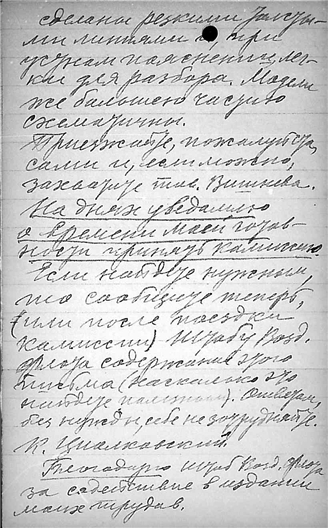 сделаны резкими
ми линиями и, при
устном пояснении, лег-
ки для разбора. Модели
же большею частию
схематичны.
Приезжайте, пожалуйста,
сами и, если можно,
захватите тов. Вишнева.
На днях уведомлю
о времени моей готов-
ности принять комиссию.
Если найдете нужным,
то сообщите теперь,
(или после поездки
комиссии) Штабу Возд.
флота содержание этого
письма (насколько это
найдете полезным). Ответом,
без нужды, себе не затрудняйте.
К. Циолковский.
Благодарю Штаб Возд. флота
за содействие в издании
моих трудов.